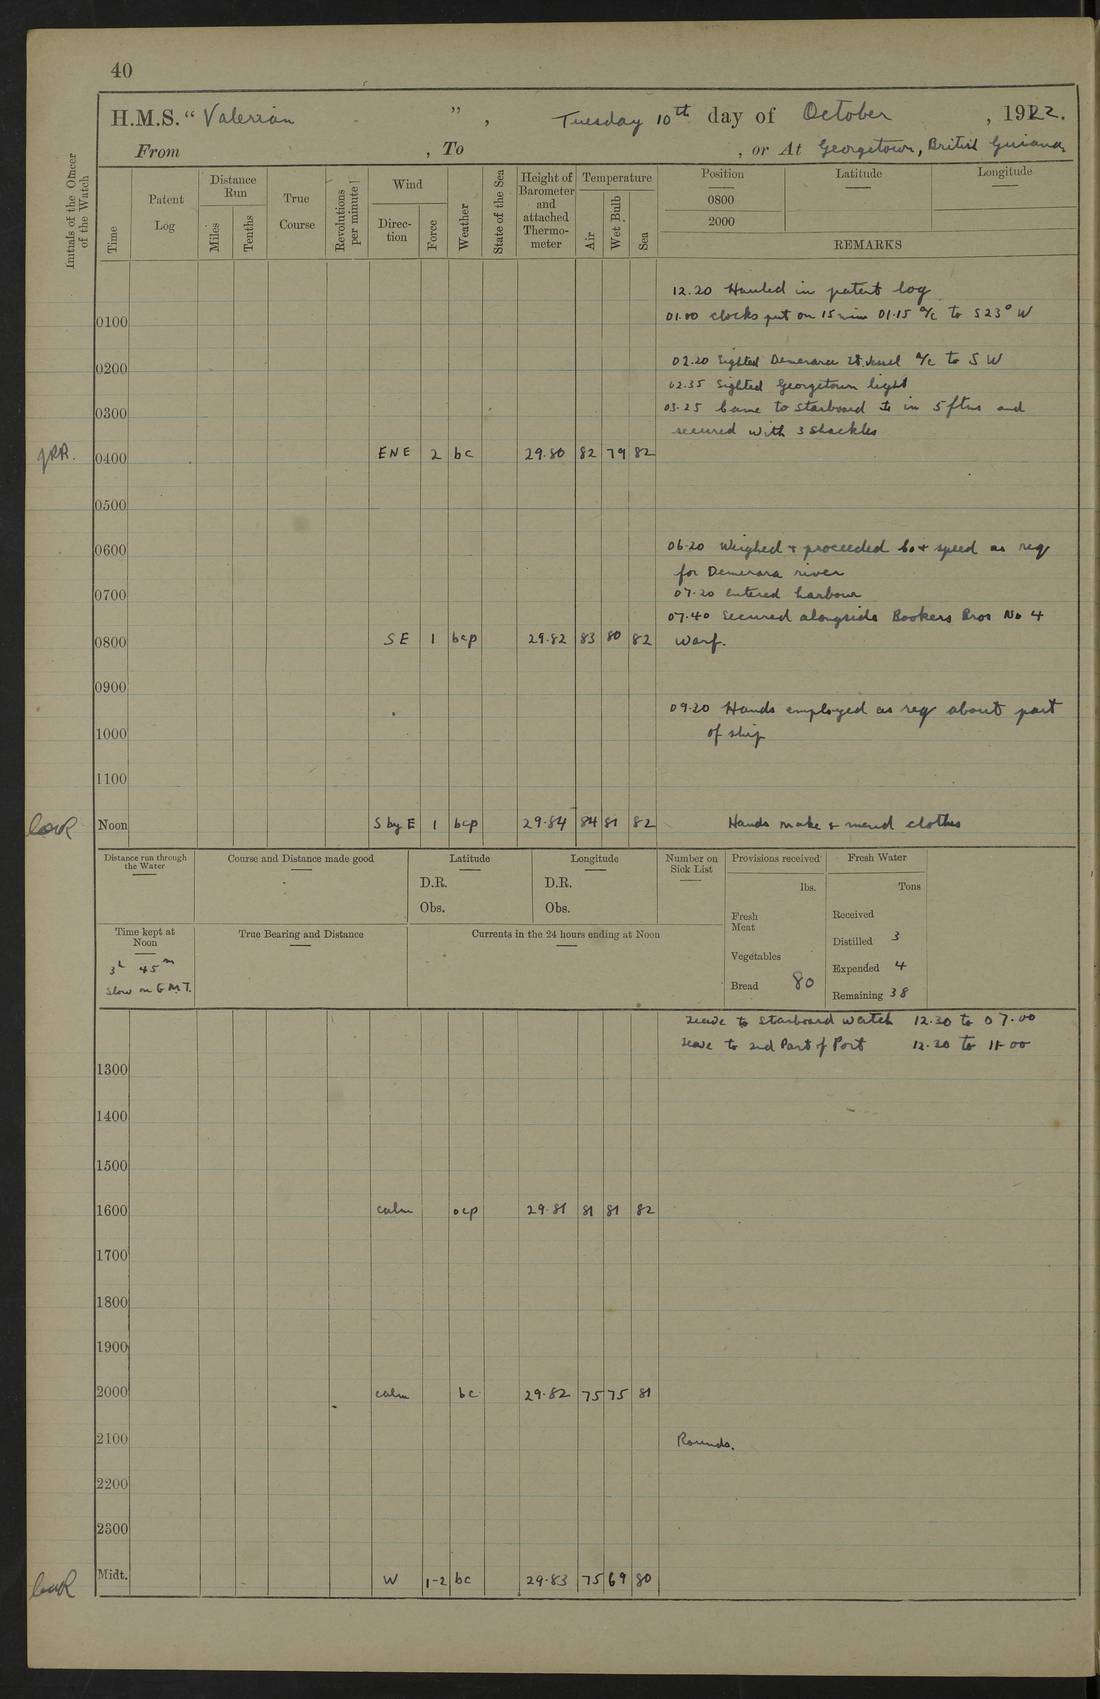 40
H.M.S. "Valerian", Tuesday 10th day of October, 1922.
From , To , or At Georgetown, British Guiana
Initials of the Officer of the Watch
Time
Patent Log
Distance Run
Miles
Tenths
True Course
Revolutions per minute
Wind
Direc-tion
Force
Weather
State of the Sea
Height of Barometer and attached Thermo-meter
Temperature
Air
Wet Bulb
Sea
Position
0800
2000
Latitude
Longitude
REMARKS
12.20 Hauled in patent log
0100 01.00 clocks put on 15 min 01.15 a/c to S23° W
0200 02.20 Sighted Demerara Lt. Vessel a/c to S W
02.35 Sighted Georgetown light
0300 03.25 Came to starboard in 5 ftms and
secured with 3 shackles
0400 ENE 2 bc 29.80 82 79 82
0500
0600 06.20 Weighed & proceeded Co & speed as req
for Demerara river
0700 07.20 Entered harbour
07.40 Secured alongside Bookers Bros No 4
0800 SE 1 bcp 29.82 83 80 82 Warf.
0900
09.20 Hands employed as req about part
1000 of ship
1100
Noon S by E 1 bcp 29.84 84 81 82 Hands make & mend clothes
Distance run through the Water
Course and Distance made good
Latitude
D.R.
Obs.
Longitude
D.R.
Obs.
Number on Sick List
Provisions received
lbs.
Fresh Meat
Vegetables
Bread 80
Fresh Water
Tons
Received
Distilled 3
Expended 4
Remaining 38
Time kept at Noon
3h 45m
Slow on G.M.T.
True Bearing and Distance
Currents in the 24 hours ending at Noon
Leave to Starboard watch 12.30 to 07.00
Leave to 2nd Part of Port 12.30 to 11.00
1300
1400
1500
1600 calm ocp 29.81 81 81 82
1700
1800
1900
2000 calm bc 29.82 75 75 81
2100 Rounds.
2200
2300
Midt. W 1-2 bc 29.83 75 69 80